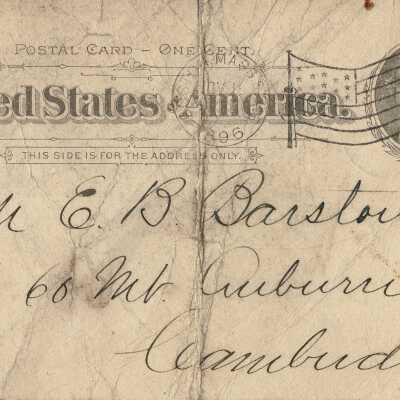 POSTAL CARD – ONE CENT.
ed States of America.
MAS
896
THIS SIDE IS FOR THE ADDRESS ONLY.
E. B. Barstow
60 Mt. Auburn
Cambrid